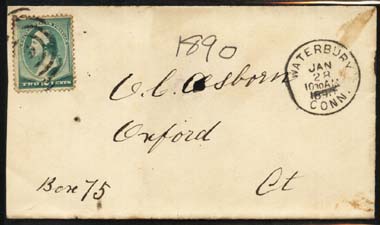 1890
WATERBURY
JAN
28
10 30 AM
CONN.
TWO CENTS
O. C. Osborn
Oxford
Box 75
Ct